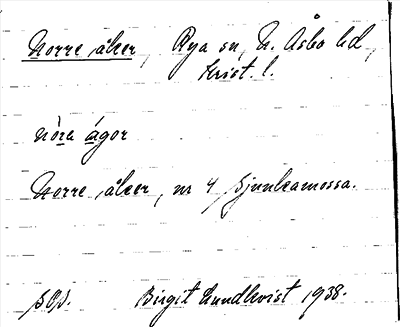 Norre åker, Rya sn, N. Åsbo hd,
Krist. l.
nòra ágor
Norre åker, nr 4 Sjunkamossa.
Birgit Lundkvist 1938.